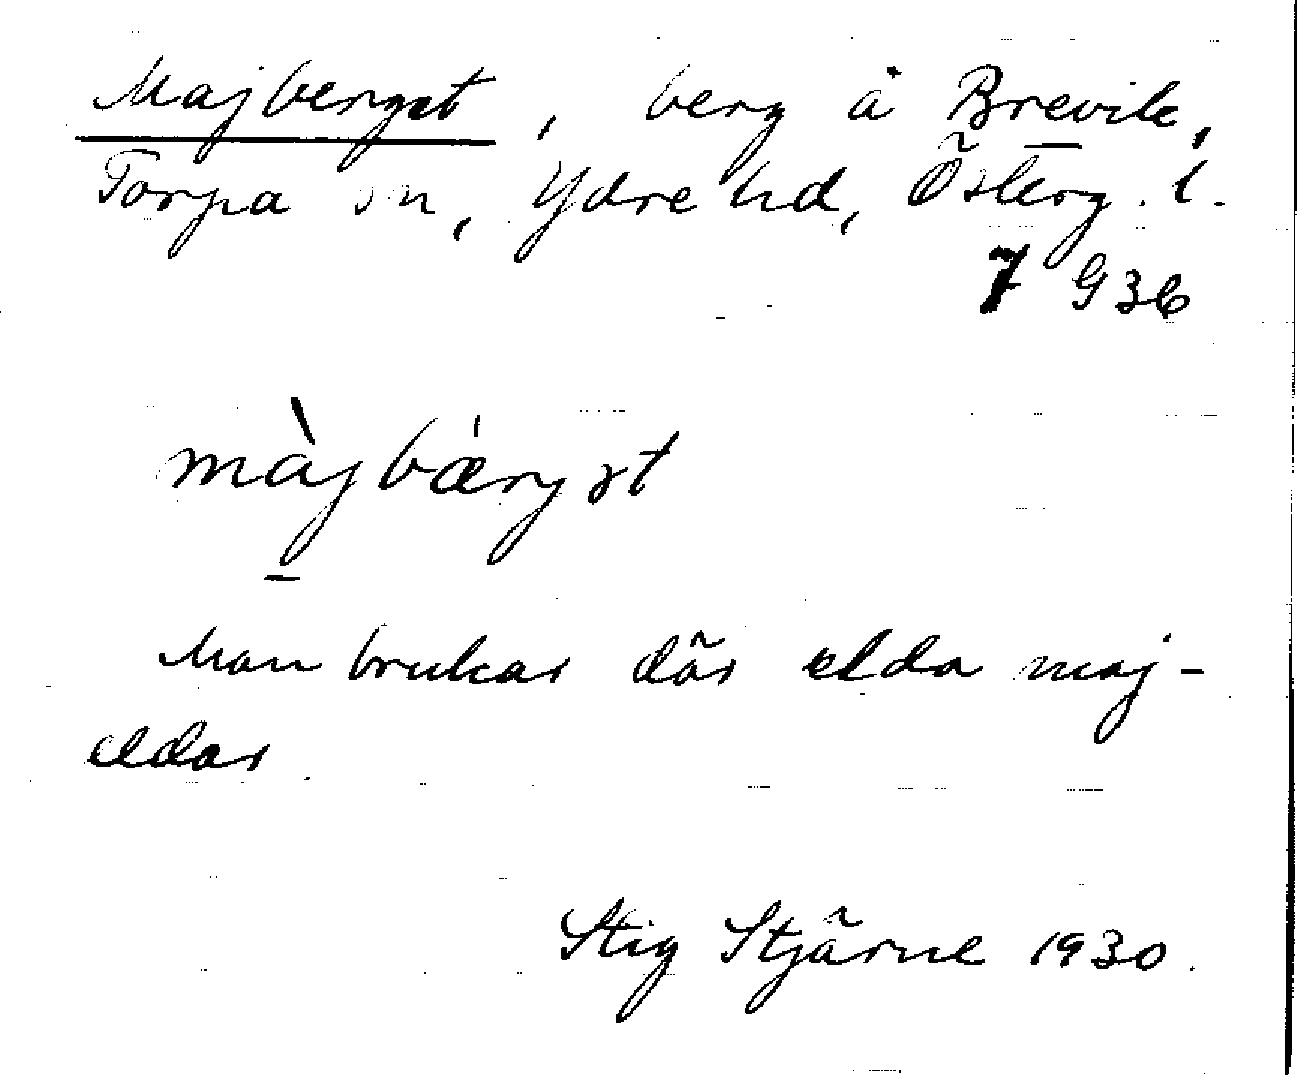 Majberget, berg å Brevik,
Torpa sn, Ydre hd, Österg. l.
7 G 3 b
màjbǽrjət
Man brukar där elda maj-
eldar.
Stig Stjärne 1930.